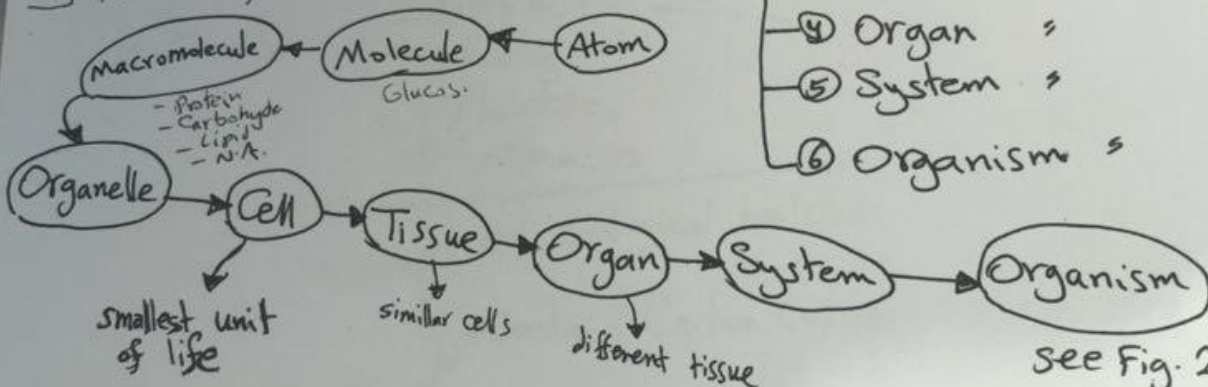 Macromolecule ← Molecule ← Atom
- Protein
- Carbohyde
- Lipid
- N.A.
Glucos.
④ Organ "
⑤ System "
⑥ Organism "
Organelle → Cell → Tissue → Organ → System → Organism
smallest unit
of life
similar cells
different tissue
see Fig. 2